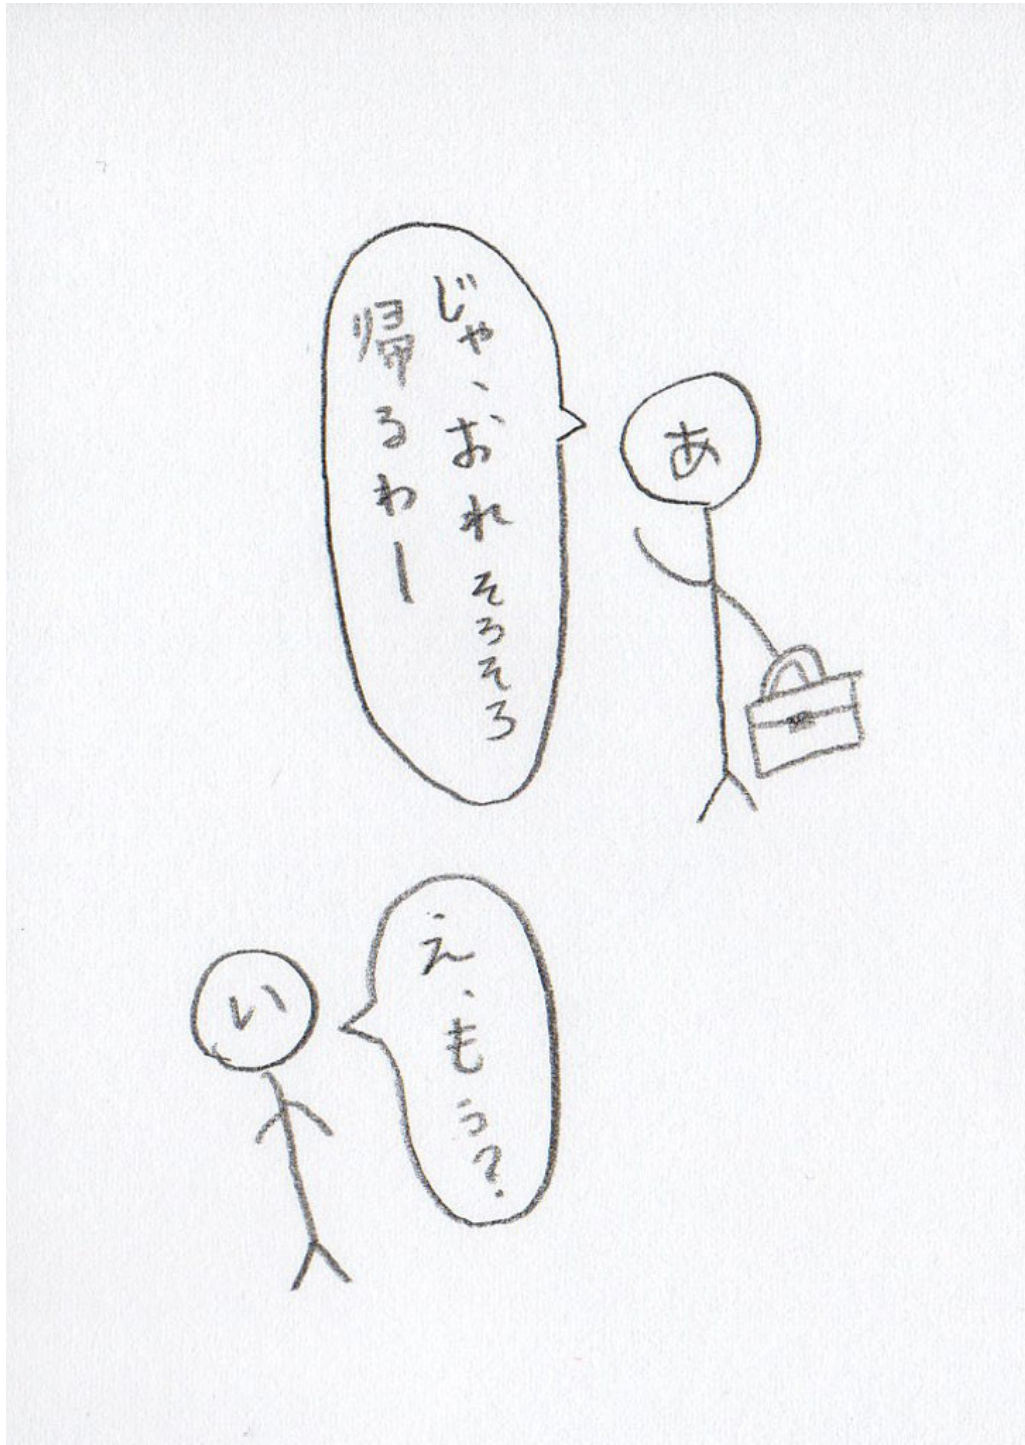 あ
じゃ、おれそろそろ
帰るわー
い
え、もう？